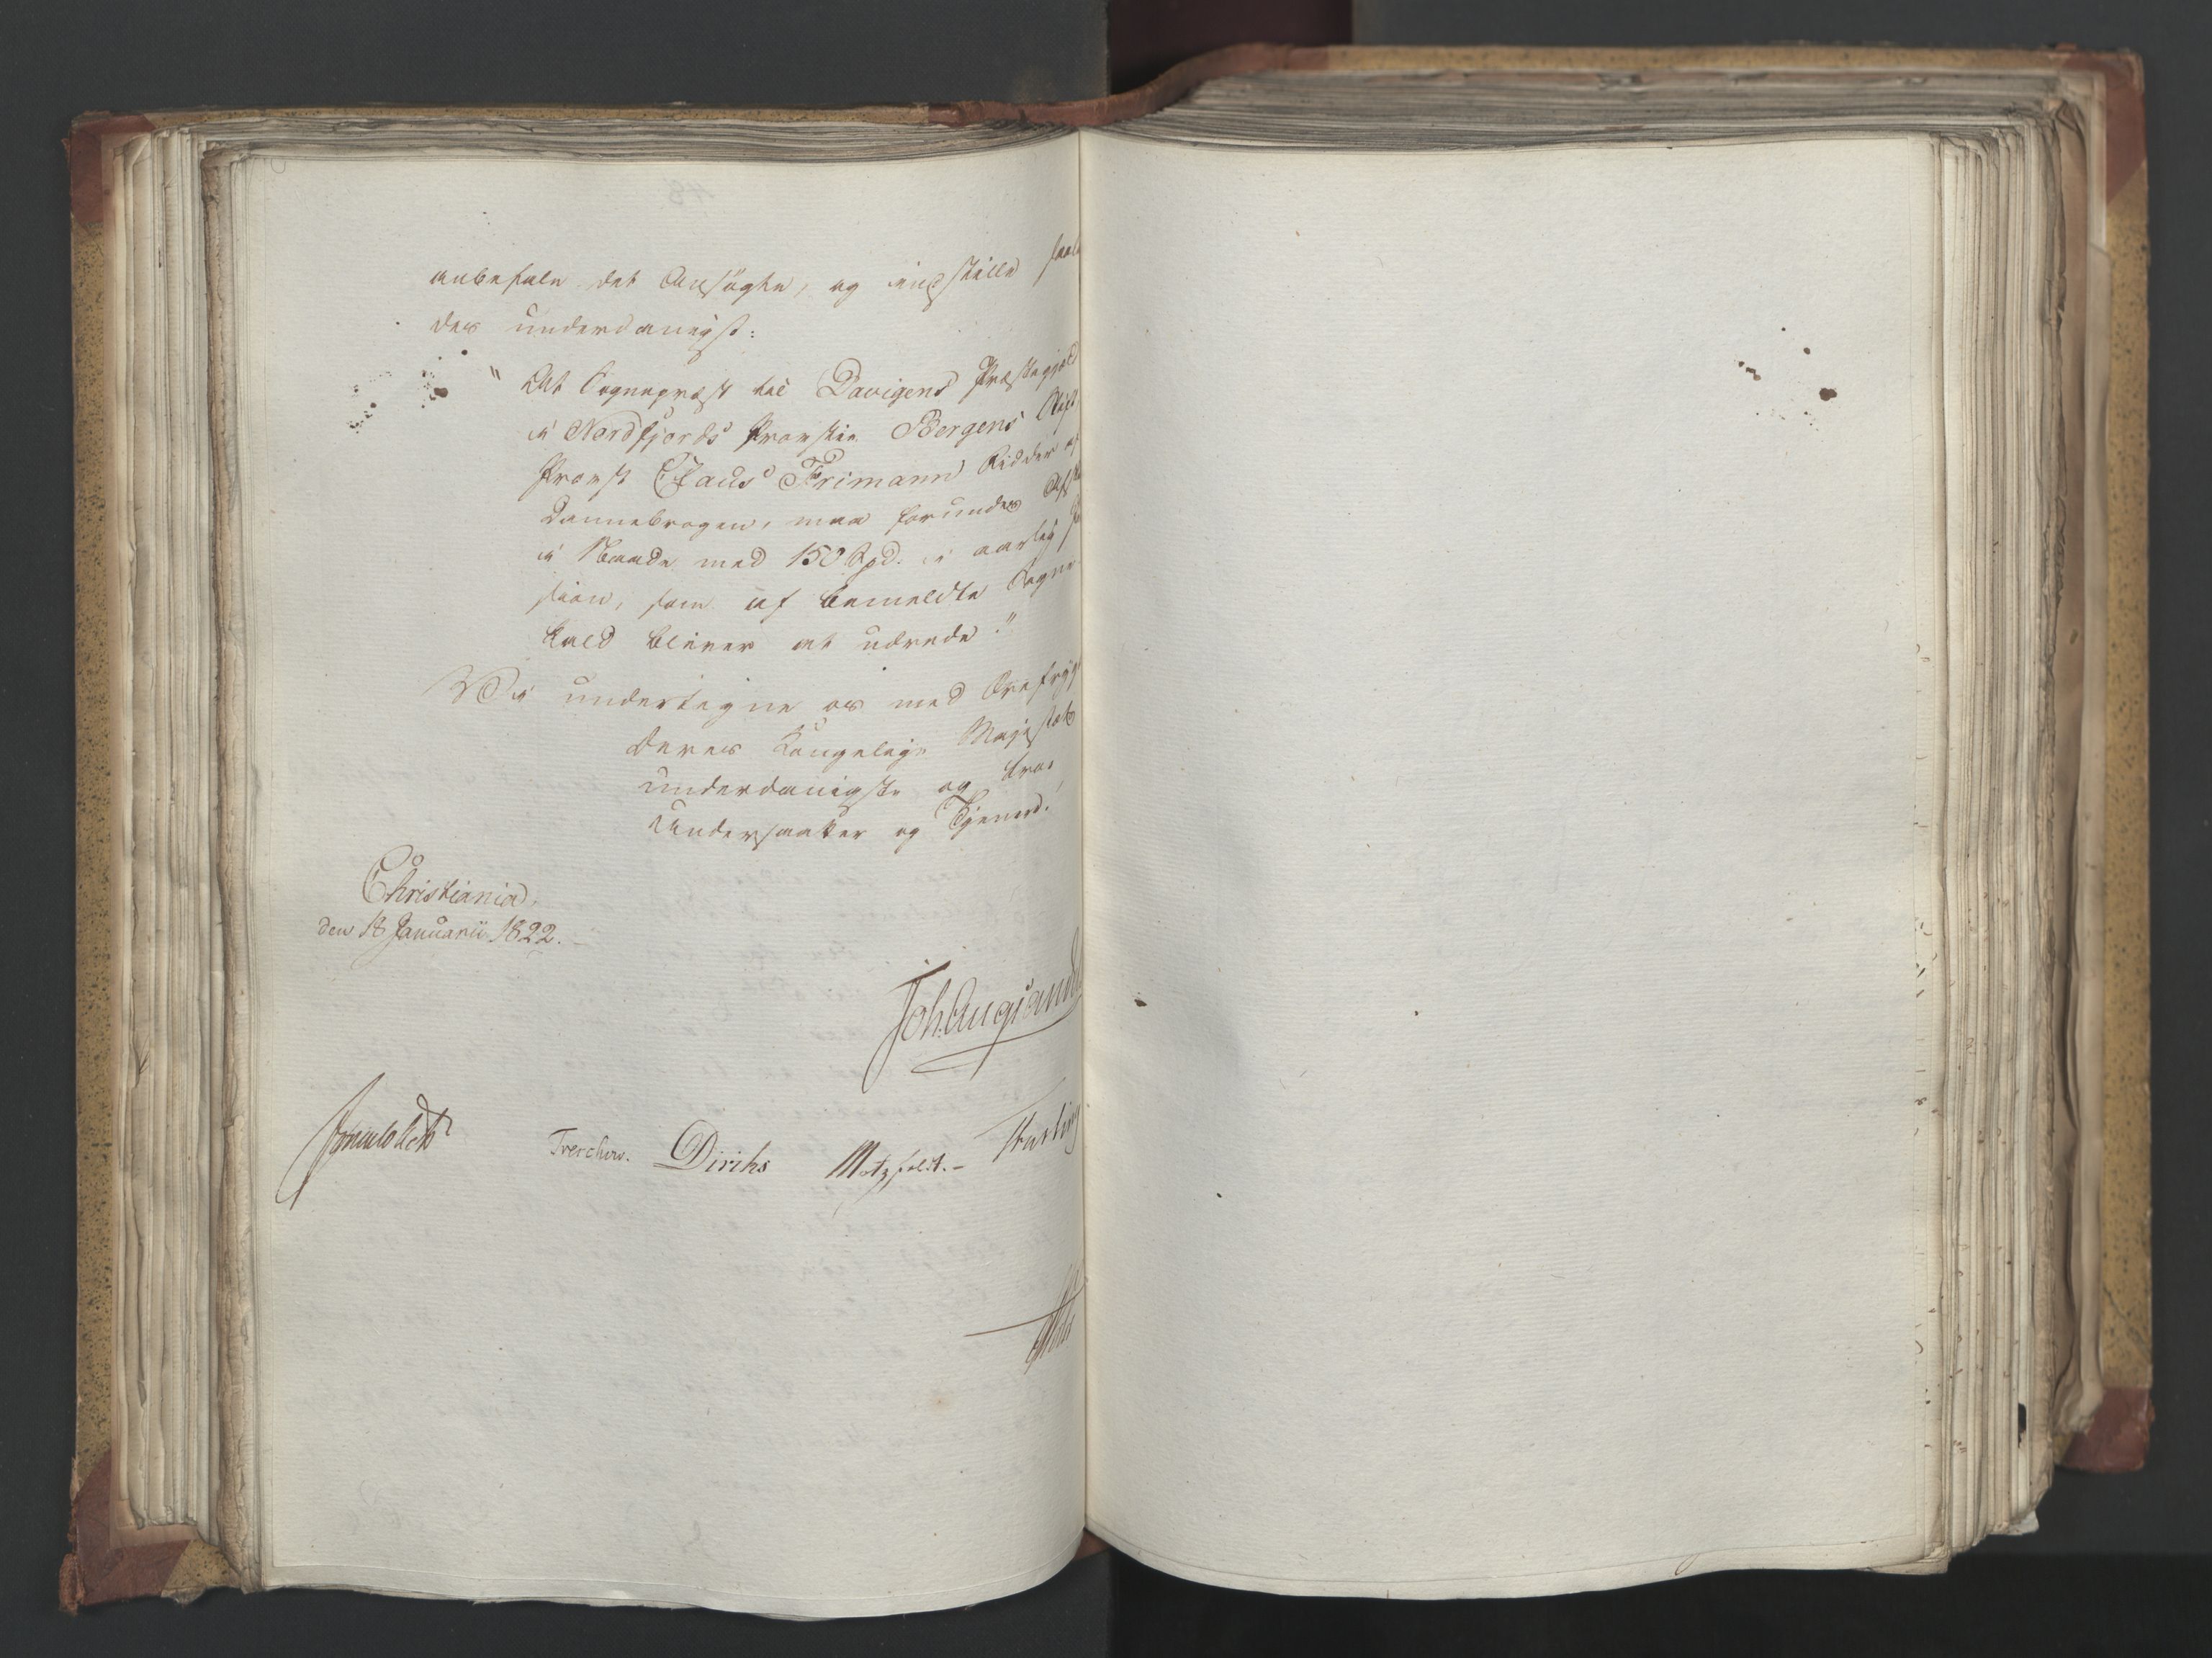 anbefale det Ansøgte, og indstille saale
des underdanigst:
"At Sognepræst til Davigens Præstegjeld
i Nordfjords Provstie Bergens Stift
Provst Claus Frimann Ridder af
Dannebrogen, maa forundes
i Naade med 150 Spd. i aarlig
sion, som af bemeldte Sogne
kald bliver at udrede."
Vi undertegne os med Ærefrygt
Deres Kongelige Majestæts
underdanigste og troe
Undersaatter og Tjenere.
Christiania,
den 18 Januarii 1822.
Joh. Aug. Sande
Sommerfeldt Treschow. Diriks Motzfeldt.-